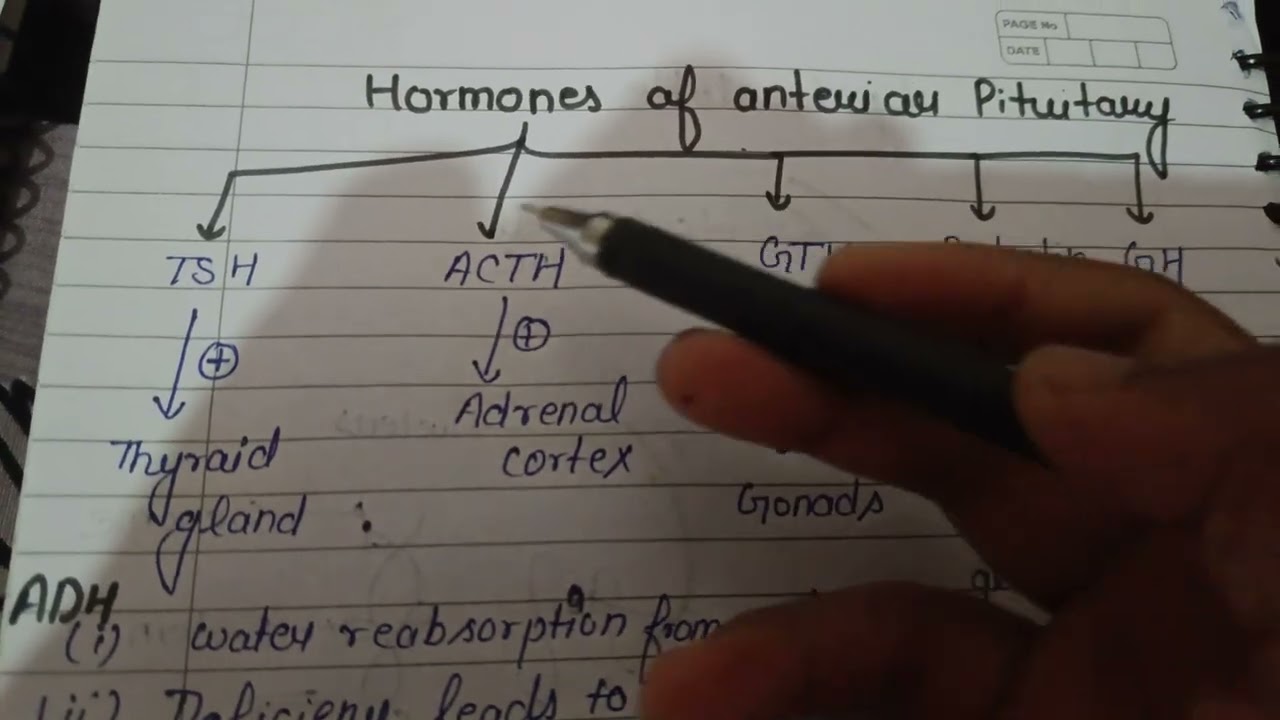 PAGE No
DATE
Hormones of anterior Pituitary
TSH ACTH GT GH
Adrenal
Thyroid cortex
gland : Gonads
ADH
(i) water reabsorption from
(ii) Deficieny leads to